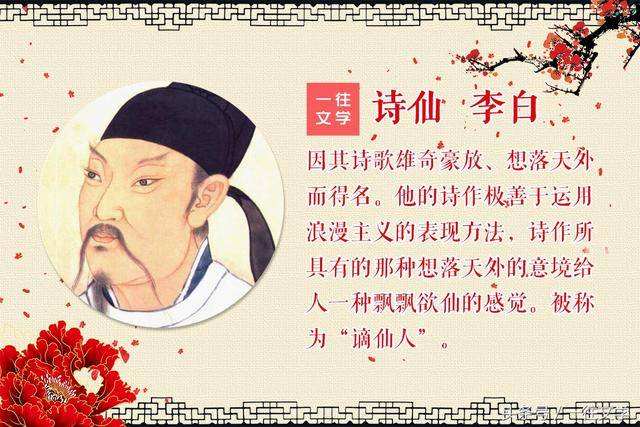 一往
文学
诗仙 李白
因其诗歌雄奇豪放、想落天外
而得名。他的诗作极善于运用
浪漫主义的表现方法，诗作所
具有的那种想落天外的意境给
人一种飘飘欲仙的感觉。被称
为“谪仙人”。
头条号 / 一往文学